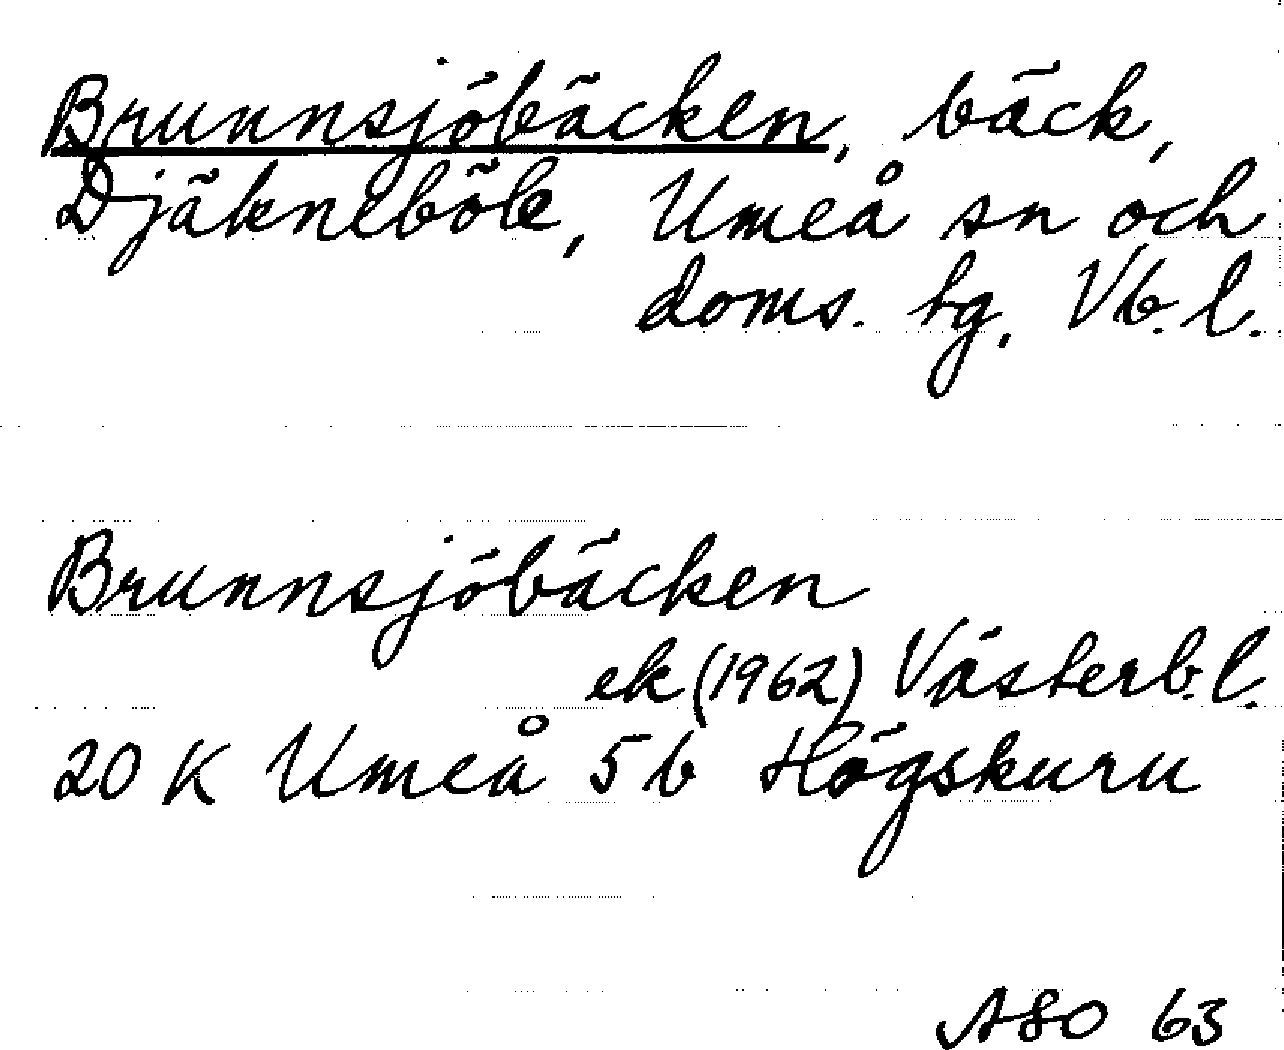 Brunnsjöbäcken, bäck,
Djäkneböle, Umeå sn och
doms. tg, Vb. l.
Brunnsjöbäcken
ek (1962) Västerb. l.
20 K Umeå 5b Högskuru
ASO 63